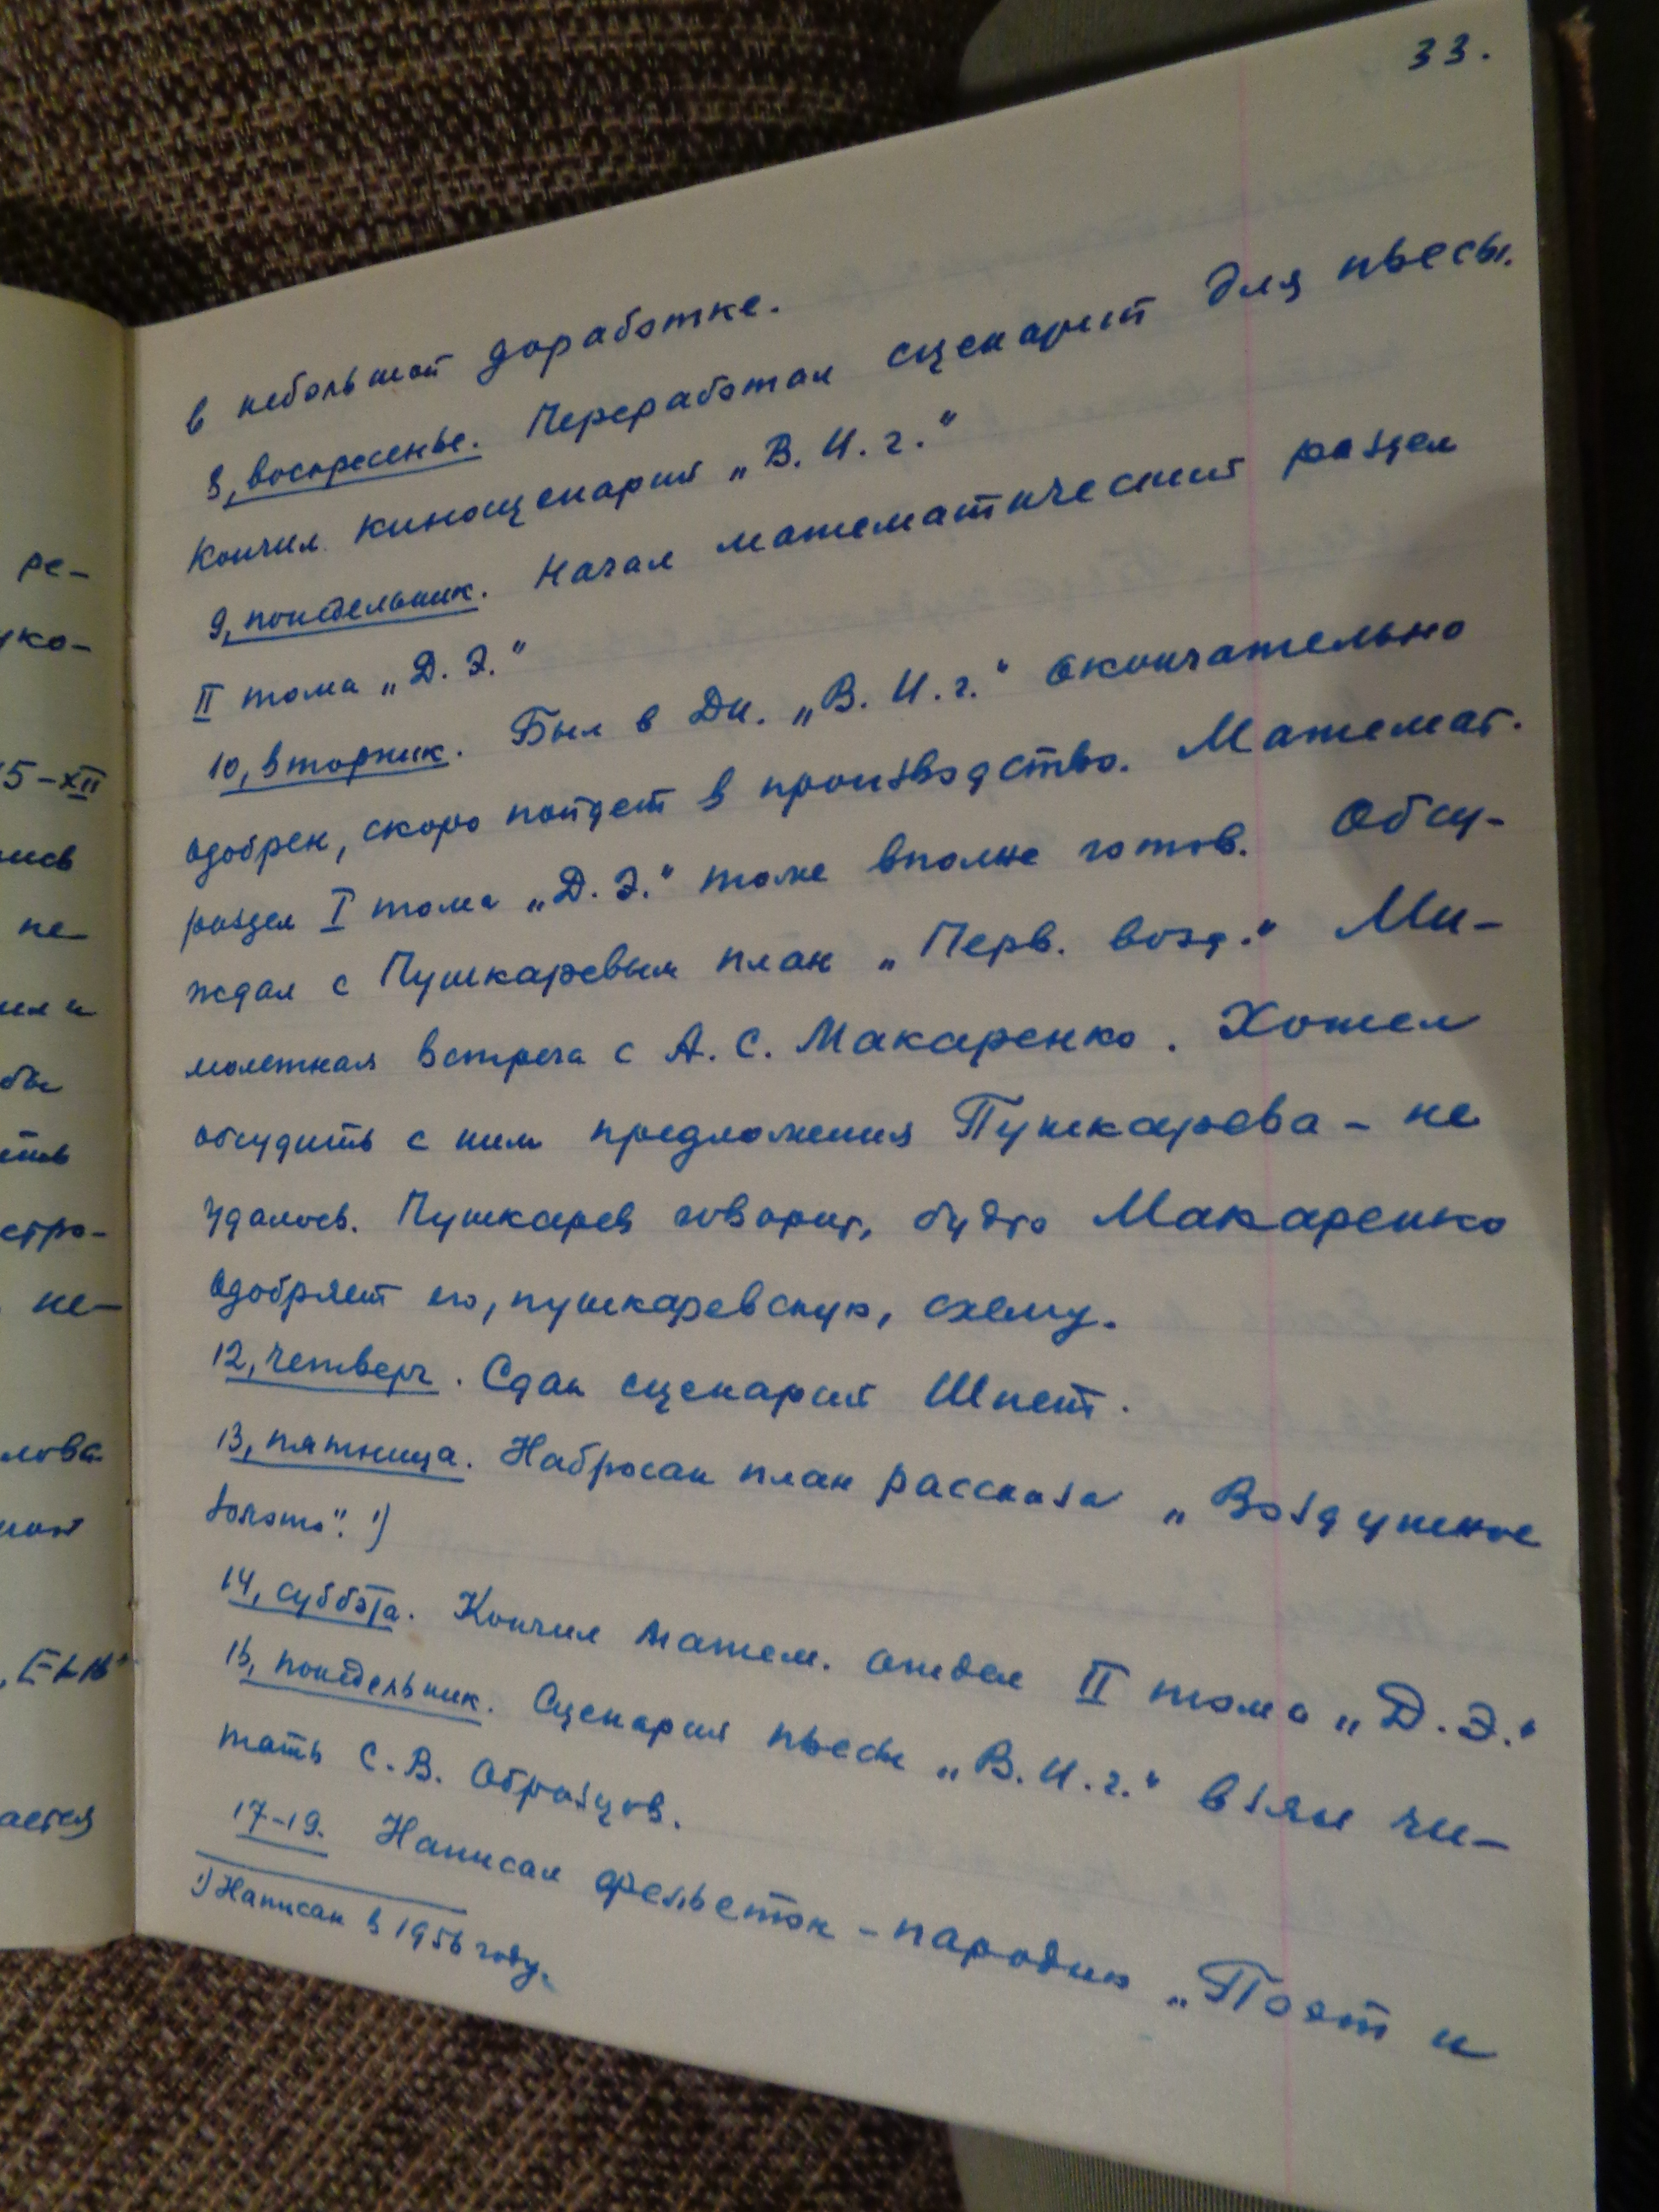 33.
в небольшой доработке.
8, воскресенье. Переработал сценарий для пьесы.
Кончил киносценарий „В. И. г.“
9, понедельник. Начал математический раздел
II тома „Д. Э.“
10, вторник. Был в Ди. „В. И. г.“ окончательно
одобрен, скоро пойдет в производство. Математ.
раздел I тома „Д. Э.“ тоже вполне готов. Обсу-
ждал с Пушкаревым план „Перв. возд.“ Ми-
молетная встреча с А. С. Макаренко. Хотел
обсудить с ним предложения Пушкарева – не
удалось. Пушкарев говорит, будто Макаренко
одобряет его, пушкаревскую, схему.
12, четверг. Сдал сценарий Шпет.
13, пятница. Набросал план рассказа „Воздушное
золото“. 1)
14, суббота. Кончил матем. отдел II тома „Д. Э.“
16, понедельник. Сценарий пьесы „В. И. г.“ взял чи-
тать С. В. Образцов.
17-19. Написал фельетон – пародию „Поэт и
1) Написан в 1956 году.
ре-
уко-
5-XII
не
бы
стро-
не-
лова
ается